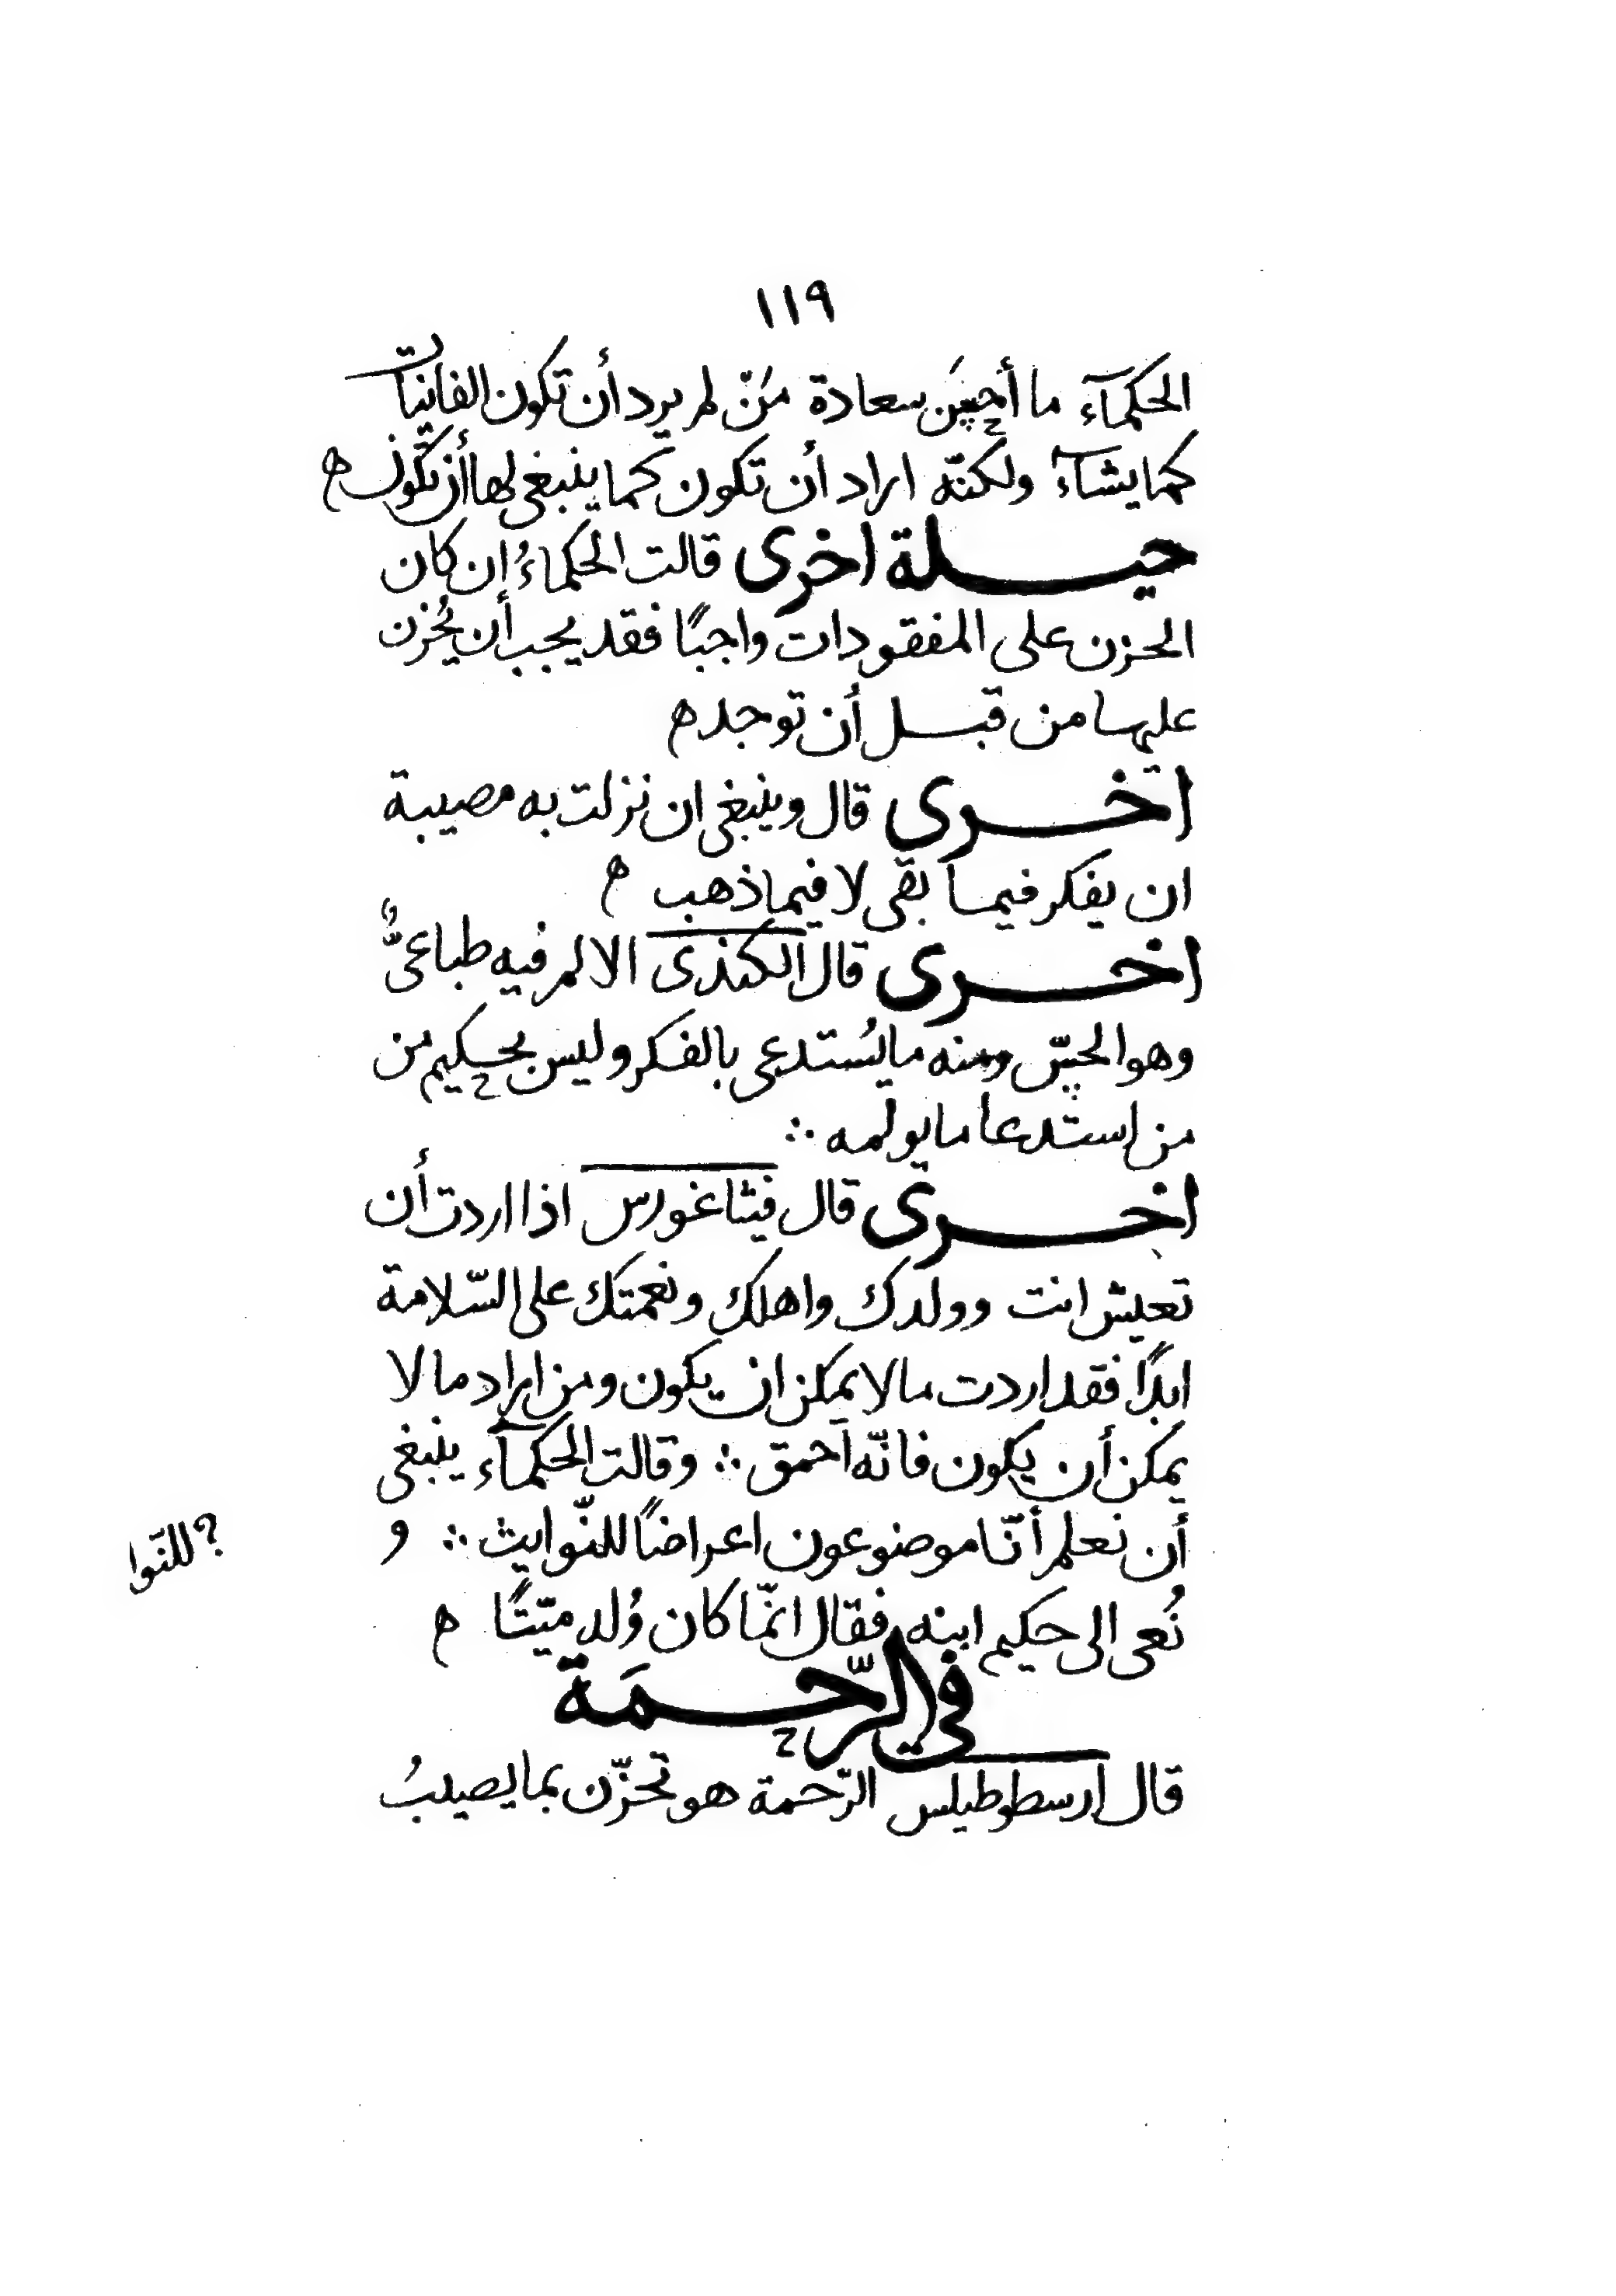 ١١٩
الحكمآء ما أحسَن سعادة مَنّ لم يرد أن تكون الفانيات
كما يشآء ولكنّه اراد أن تكون كما ينبغى لها أن تكون ه
حيلة اخرى قالت الحكماءُ إن كان
الحزن على المفقودات واجبًا فقد يجب أن يُحزن
عليها من قبل أن توجد ه
اخرى قال وينبغى ان نزلت به مصيبة
ان يفكر فيما بقى لا فيما ذهب ه
اخرى قال الكندى الالم فيه طباعىٌّ
وهو الحسّ ومنه ما يُستدعى بالفكر وليس بحكيم من
من استدعا ما يولمه ∴
اخرى قال فيثاغورس اذا اردت أن
تعيش انت وولدك واهلك ونعمتك على السّلامة
ابدًا فقد اردت ما لا يمكن ان يكون ومن اراد ما لا
يمكن أن يكون فانّه احمق ∴ وقالت الحكمآء ينبغى
أن نعلم أنّا موضوعون اعراضًا للنّوايث ∴ و
؟ للنّوا
نُعى الى حكيم ابنه فقال انمّا كان وُلد ميّتًا ه
فى الرّحمَة
قال ارسطوطيلس الرّحمة هو تحزّن بما يصيبُ